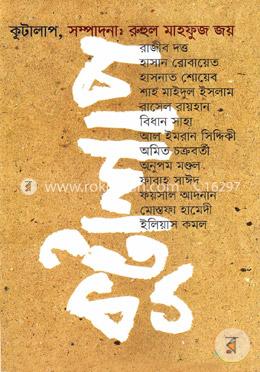 কুটালাপ, সম্পাদনা: রুহুল মাহফুজ জয়
রাজীব দত্ত
হাসান রোবায়েত
হাসনাত শোয়েব
শাহ মাইদুল ইসলাম
রাসেল রায়হান
বিধান সাহা
আল ইমরান সিদ্দিকী
অমিত চক্রবর্তী
অনুপম মণ্ডল
ফারাহ্ সাঈদ
ফয়সাল আদনান
মোস্তফা হামেদী
ইলিয়াস কমল
কুটালাপ
16297